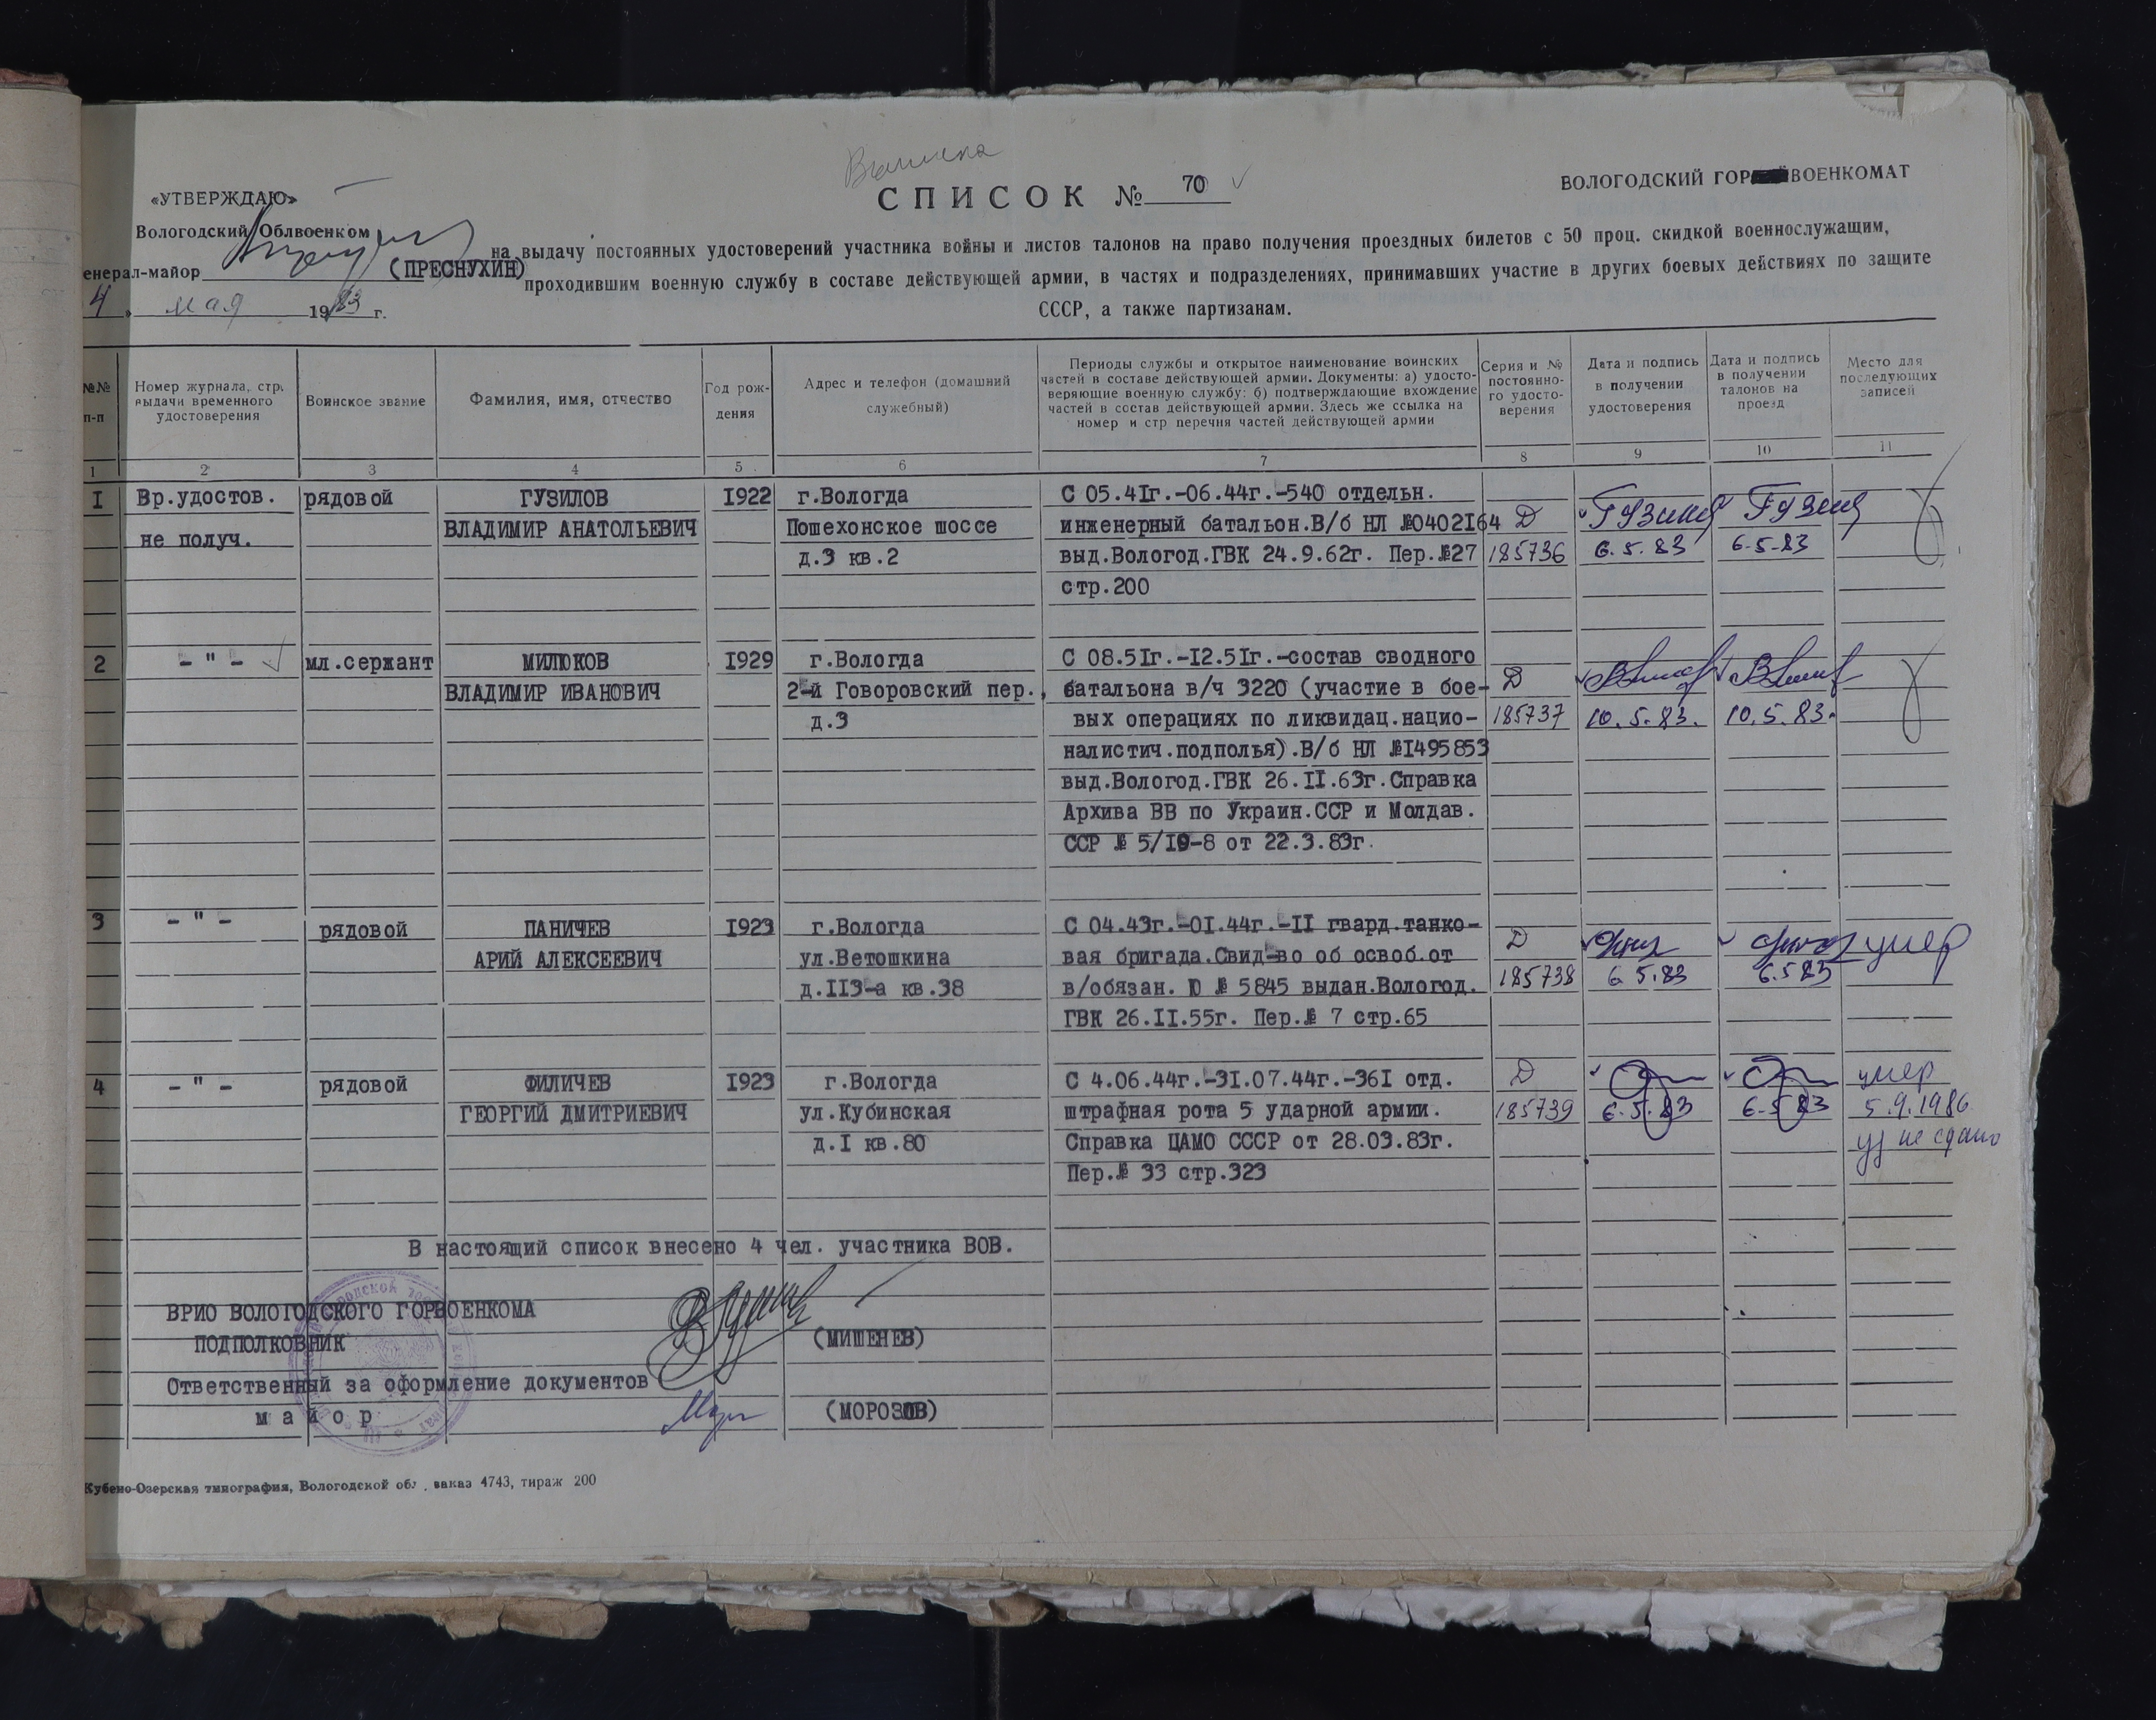 Выписка
СПИСОК № 70
ВОЛОГОДСКИЙ ГОР ВОЕНКОМАТ
«УТВЕРЖДАЮ»
Вологодский Облвоенком
енерал-майор (ПРЕСНУХИН)
4 » мая 1983 г.
на выдачу постоянных удостоверений участника войны и листов талонов на право получения проездных билетов с 50 проц. скидкой военнослужащим,
проходившим военную службу в составе действующей армии, в частях и подразделениях, принимавших участие в других боевых действиях по защите
СССР, а также партизанам.
№№ п-п
Номер журнала, стр. выдачи временного удостоверения
Воинское звание
Фамилия, имя, отчество
Год рож-
дения
Адрес и телефон (домашний
служебный)
Периоды службы и открытое наименование воинских
частей в составе действующей армии. Документы: а) удосто-
веряющие военную службу: б) подтверждающие вхождение
частей в состав действующей армии. Здесь же ссылка на
номер и стр перечня частей действующей армии
Серия и №
постоянно-
го удосто-
верения
Дата и подпись
в получении
удостоверения
Дата и подпись
в получении
талонов на
проезд
Место для
последующих
записей
1 2 3 4 5 6 7 8 9 10 11
I Вр.удостов. рядовой ГУЗИЛОВ I922 г.Вологда С 05.4Iг.-06.44г.-540 отдельн.
не получ. ВЛАДИМИР АНАТОЛЬЕВИЧ Пошехонское шоссе инженерный батальон.В/б НЛ №0402I64 Д
д.3 кв.2 выд.Вологод.ГВК 24.9.62г. Пер.№27 185736 6.5.83 6.5.83
стр.200
2 - " - мл.сержант МИЛЮКОВ I929 г.Вологда С 08.5Iг.-I2.5Iг.-состав сводного
ВЛАДИМИР ИВАНОВИЧ 2-й Говоровский пер., батальона в/ч 3220 (участие в бое- Д
д.3 вых операциях по ликвидац.нацио- 185737 10.5.83. 10.5.83.
налистич.подполья).В/б НЛ №I495853
выд.Вологод.ГВК 26.II.63г.Справка
Архива ВВ по Украин.ССР и Молдав.
ССР № 5/I9-8 от 22.3.83г.
3 - " - рядовой ПАНИЧЕВ I923 г.Вологда С 04.43г.-0I.44г.-II гвард.танко-
АРИЙ АЛЕКСЕЕВИЧ ул.Ветошкина вая бригада.Свид-во об освоб.от Д умер
д.II3-а кв.38 в/обязан. Ю № 5845 выдан.Вологод. 185738 6.5.83 6.5.83
ГВК 26.II.55г. Пер.№ 7 стр.65
4 - " - рядовой ФИЛИЧЕВ I923 г.Вологда С 4.06.44г.-3I.07.44г.-36I отд. Д умер
ГЕОРГИЙ ДМИТРИЕВИЧ ул.Кубинская штрафная рота 5 ударной армии. 185739 6.5.83 6.5.83 5.9.1986
д.I кв.80 Справка ЦАМО СССР от 28.03.83г. уд не сдано
Пер.№ 33 стр.323
В настоящий список внесено 4 чел. участника ВОВ.
ВРИО ВОЛОГОДСКОГО ГОРВОЕНКОМА
ПОДПОЛКОВНИК (МИШЕНЕВ)
Ответственный за оформление документов
майор (МОРОЗОВ)
Кубено-Озерская типография, Вологодской обл., заказ 4743, тираж 200